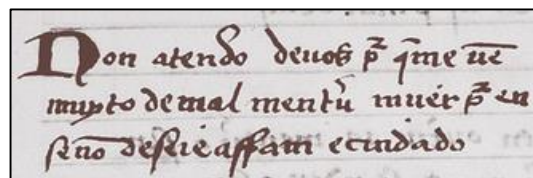 Non atendo deuos pr̄ q̄ me uē
muyto de mal mentr̄ uiuer pr̄ en
senō deseie affam e cuidado